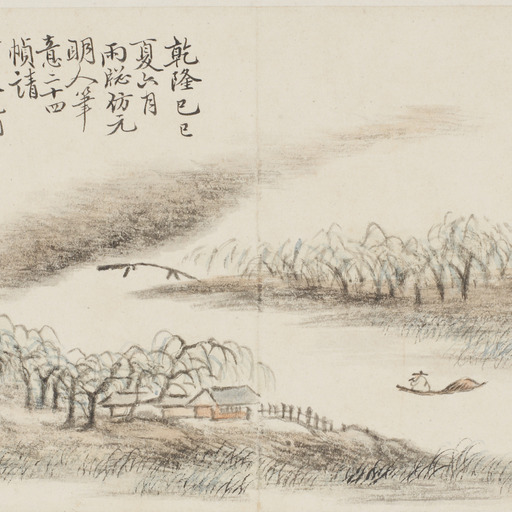 乾隆己巳
夏六月
雨牕仿元
明人筆
意二十四
幀請